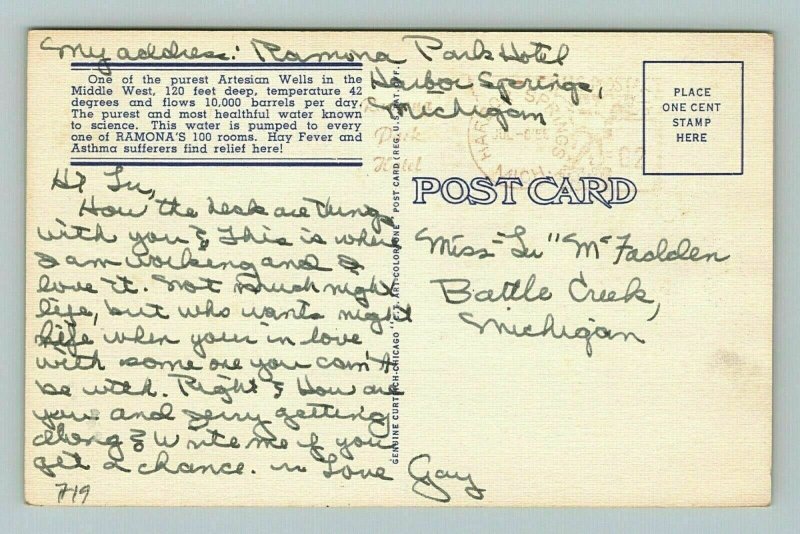 My address: Ramona Park Hotel
Harbor Springs,
Michigan
One of the purest Artesian Wells in the
Middle West, 120 feet deep, temperature 42
degrees and flows 10,000 barrels per day.
The purest and most healthful water known
to science. This water is pumped to every
one of RAMONA'S 100 rooms. Hay Fever and
Asthma sufferers find relief here!
Hi Lu,
How the heck are things
with you? This is where
I am working and I
love it. Not much night
life, but who wants night
life when your in love
with some one you can't
be with. Right? How are
you and Jerry getting
along? Write me if you
get a chance. in Love Gay
719
GENUINE CURTEICH-CHICAGO "C.T. ART-COLORTONE" POST CARD (REG. U.S. PAT. OFF.)
Park
Hotel
HARBOR SPRINGS
MICH.
PLACE
ONE CENT
STAMP
HERE
POST CARD
Miss "Lu" McFadden
Battle Creek,
Michigan